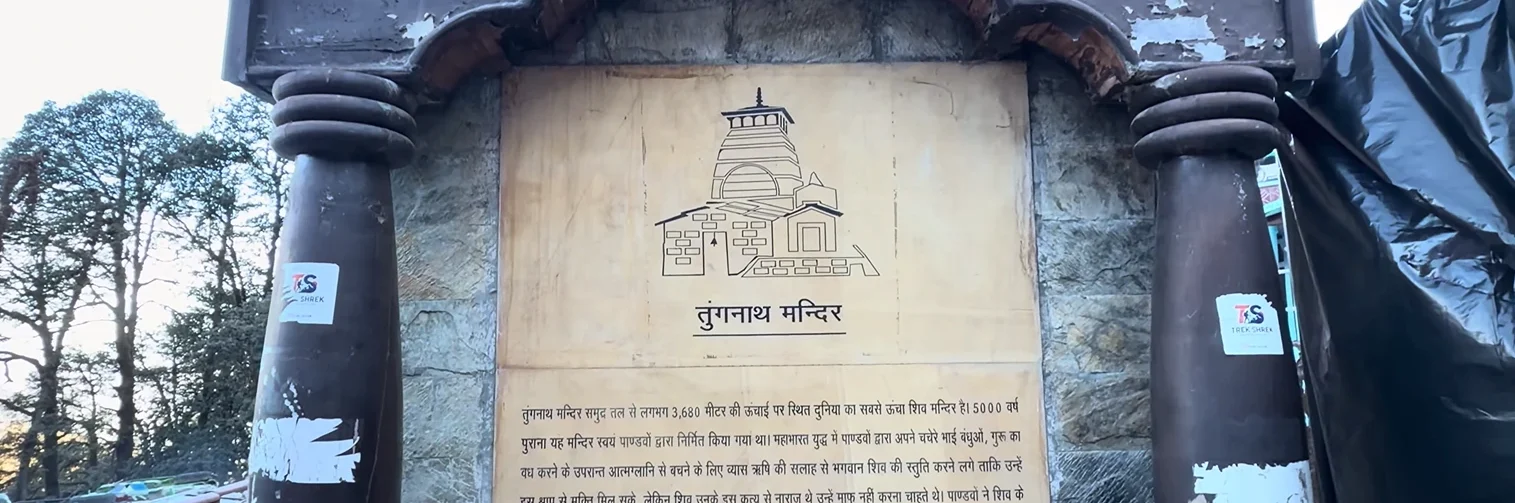 तुंगनाथ मन्दिर
तुंगनाथ मन्दिर समुद्र तल से लगभग 3,680 मीटर की ऊंचाई पर स्थित दुनिया का सबसे ऊंचा शिव मन्दिर है। 5000 वर्ष
पुराना यह मन्दिर स्वयं पाण्डवों द्वारा निर्मित किया गया था। महाभारत युद्ध में पाण्डवों द्वारा अपने चचेरे भाई बंधुओं, गुरू का
वध करने के उपरान्त आत्मग्लानि से बचने के लिए व्यास ऋषि की सलाह से भगवान शिव की स्तुति करने लगे ताकि उन्हें
इस श्राप से मुक्ति मिल सके, लेकिन शिव उनके इस कृत्य से नाराज थे उन्हें माफ नहीं करना चाहते थे। पाण्डवों ने शिव के
TS
SHREK
TS
TREK SHREK